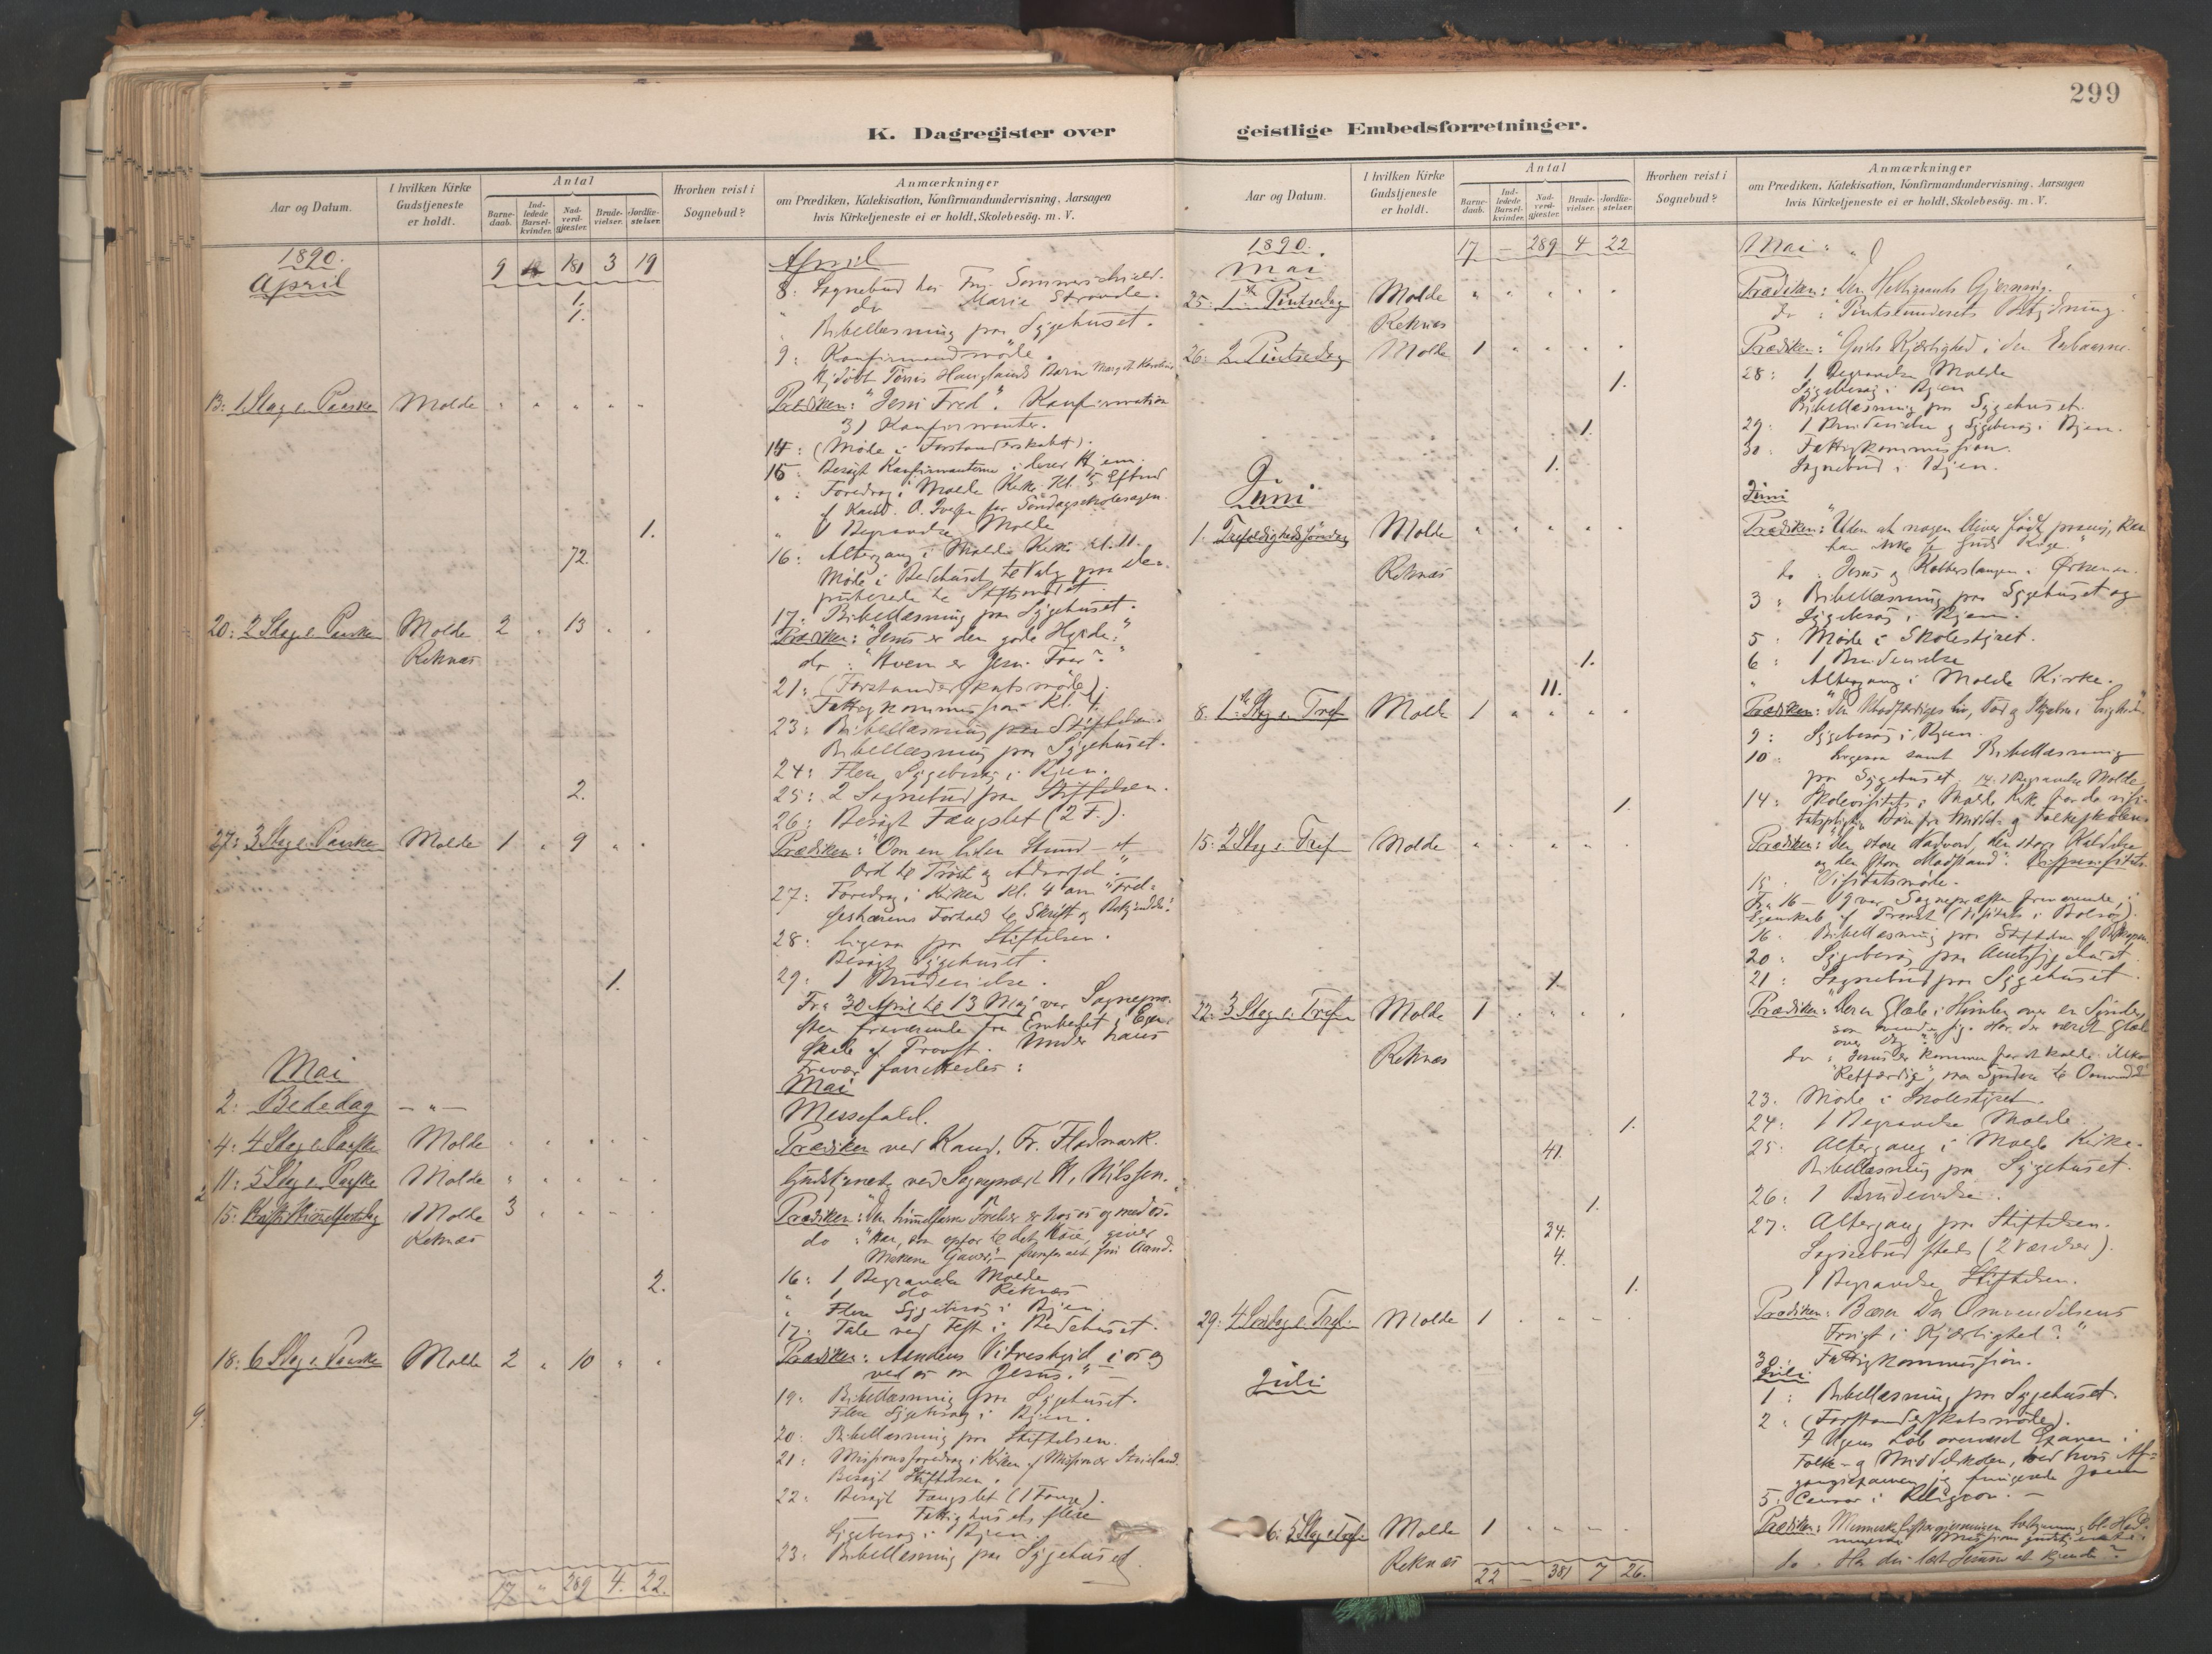 299
K. Dagregister over
geistlige Embedsforretninger.
Aar og Datum.
I hvilken Kirke Gudstjeneste er holdt.
Antal
Barne-daab.
Ind-ledede Barsel-kvinder.
Nad-verd-gjæster.
Brude-vielser.
Jordfæ-stelser.
Hvorhen reist i Sognebud?
Anmærkninger
om Prædiken, Katekisation, Konfirmandundervisning, Aarsagen
hvis Kirketjeneste ei er holdt, Skolebesög. m. V.
1890.
9 181 3 19
April
April
8: Sognebud hos Frk. 1.
" do - Marie Strande. 1.
" Bibellæsning paa Sygehuset.
9: Konfirmandmøde.
Hjdöbt Barn Margit
13: 1 Sdag e. Paaske Molde " " " " "
Prædiken: "Jesu Fred". Konfirmation
31 Konfirmanter.
14: (Møde i Forstanderskabet).
15: Besøgt Konfirmanterne i deres Hjem.
": Foredrag i Molde Kirke Kl. 5 Eftmd
af Kand. O. for Søndagsskolesagen.
" 1 Begravelse Molde 1.
16: Altergang i Molde Kirke Kl. 11. 72.
Møde i Bedehuset til Valg paa De-
puterede til Stiftsmødet.
17: Bibellæsning paa Sygehuset.
20: 2 Sdag e. Paaske Molde 2 " 13 " "
Reknæs
Prædiken: "Jesus er den gode Hyrde."
do : "Hvem er Jesu Faar?"
21: (Forstanderskabsmøde).
Fattigkommission Kl. 4.
23: Bibellæsning paa Stiftelsen.
Bibellæsning paa Sygehuset.
24: Flere Sygebesøg i Byen.
25: 2 Sognebud paa Stiftelsen. 2.
26: Besøgt Fængslet (2 F.).
27: 3 Sdag e. Paaske Molde 1 " 9 " "
Prædiken: "Om en liden Stund - et
Ord til Trøst og Advarsel."
27: Foredrag i Kirken Kl. 4 om "Frel-
seshærens Forhold til Skrift og Bekjendelse."
28: Ligesaa paa Stiftelsen.
Besøgt Sygehuset.
29: 1 Brudevielse. 1.
Fra 30 April til 13 Maj var Sognepræ-
sten fraværende fra Embedet i Egen-
skab af Provst. Under hans
Fravær forrettedes:
Mai
Mai
2: Bededag - " -
Messefald.
4: 4 Sdag e. Paaske Molde " " " " "
Prædiken ved Kand. Fr. Flodmark.
11: 5 Sdag e. Paaske Molde " " " " "
Gudstjeneste ved Sognepræst H. Nilssen.
15: Kristi Himmelfartsdag Molde 3 " " " "
Reknæs
Prædiken: "Den himmelfarne Frelser er hos os og med os."
do : "Han, som opfor til det Høie, giver
Menneskene Gaver," - fornemmelig sin Aand.
16: 1 Begravelse Molde
" 1 do Reknæs 2.
" Flere Sygebesøg i Byen.
17: Tale ved Fest i Bedehuset.
18: 6 Sdag e. Paaske Molde 2 " 10 " "
Prædiken: Aandens Vidnesbyrd i os og
ved os om Jesus." -
19: Bibellæsning paa Sygehuset.
Flere Sygebesøg i Byen.
20: Bibellæsning paa Stiftelsen.
21: Missionsforedrag i Kirken af Missionær
Besøgt Stiftelsen.
22: Besøgt Fængslet (1 Fange).
Fattighuset, flere
Sygebesøg i Byen.
23: Bibellæsning paa Sygehuset.
17 " 289 4. 22.
Aar og Datum.
I hvilken Kirke Gudstjeneste er holdt.
Antal
Barne-daab.
Ind-ledede Barsel-kvinder.
Nad-verd-gjæster.
Brude-vielser.
Jordfæ-stelser.
Hvorhen reist i Sognebud?
Anmærkninger
om Prædiken, Katekisation, Konfirmandundervisning, Aarsagen
hvis Kirketjeneste ei er holdt, Skolebesög. m. V.
1890.
17 - 289 4 22
Mai
Mai:
25: 1ste Pintsedag Molde " " " " "
Reknæs
Prædiken: Den Helligaands Gjerning.
do : Pintseunderets Betydning.
26: 2 Pintsedag Molde 1 " " " "
Prædiken: "Guds Kjærlighed i den Enbaarne.
28: 1 Begravelse Molde 1.
Sygebesøg i Byen
Bibellæsning paa Sygehuset.
29: 1 Brudevielse og Sygebesøg i Byen. 1.
30: Fattigkommission.
Sognebud i Byen. 1.
Juni
Juni
1. Trefoldighedssöndag Molde " " " " "
Reknæs
Prædiken: "Uden at nogen bliver født paany, kan
han ikke se Guds Rige."
do : Jesus og Kobberslangen i Ørkenen.
3 : Bibellæsning paa Sygehuset og
Sygebesøg i Byen.
5 : Møde i Skolestyret.
6 : 1 Brudevielse 1.
" Altergang i Molde Kirke. 11.
8: 1ste Sdag e. Tref. Molde 1 " " " "
9 : Sygebesøg i Byen.
10 : Ligesaa samt Bibellæsning
paa Sygehuset. 14: 1 Begravelse Molde 1.
14: Skolevisitats i Molde Kirke for de visi-
tatspligtige Børn fra Middel- og Folkeskolen.
15: 2 Sdag e. Tref Molde " " " " "
Prædiken: "Den store Nadvord, den store Indbydelse
og den store Modstand".
15 : Visitatsmøde.
Fra 16 - 19 var Sognepræsten fraværende i
Egenskab af Provst (Visitats i Bolsø).
16 : Bibellæsning paa Stiftelsen af Biskopen.
20 : Sygebesøg paa Amtssygehuset.
21 : Sognebud paa Sygehuset. 1.
22: 3 Sdag e. Tref. Molde 1 " " " "
Reknæs
Prædiken: "Der er Glæde i Himlen over en Synder,
som omvender sig. Har der været Glæde
over dig?"
do : Jesus er kommen for at kalde, ikke
"Retfærdige", men Syndere til Omvendelse
23: Møde i Skolestyret.
24: 1 Begravelse Molde 1.
25: Altergang i Molde Kirke. 41.
Bibellæsning paa Sygehuset.
26: 1 Brudevielse. 1.
27: Altergang paa Stiftelsen. 34.
Sognebud steds (2 Værelser). 4.
1 Begravelse Stiftelsen. 1.
29: 4 Søndag e. Tref. Molde 1 " " " "
Prædiken: Bærer Du Omvendelsens
Frugt i Kjærlighed?"
30: Fattigkommission.
Juli
Juli
1 : Bibellæsning paa Sygehuset.
2 : (Forstanderskabsmøde).
I Ugens Løb overværet Examen i
Folke- og Middelskolen, ved hvis Af-
gangsexamen jeg fungerede som
5: Censor i Religion. -
6: 5 Sdag e. Tref. Molde 1 " " " "
Reknæs
do : Har du lært Jesum at kjende?
22 - 381 7 26.